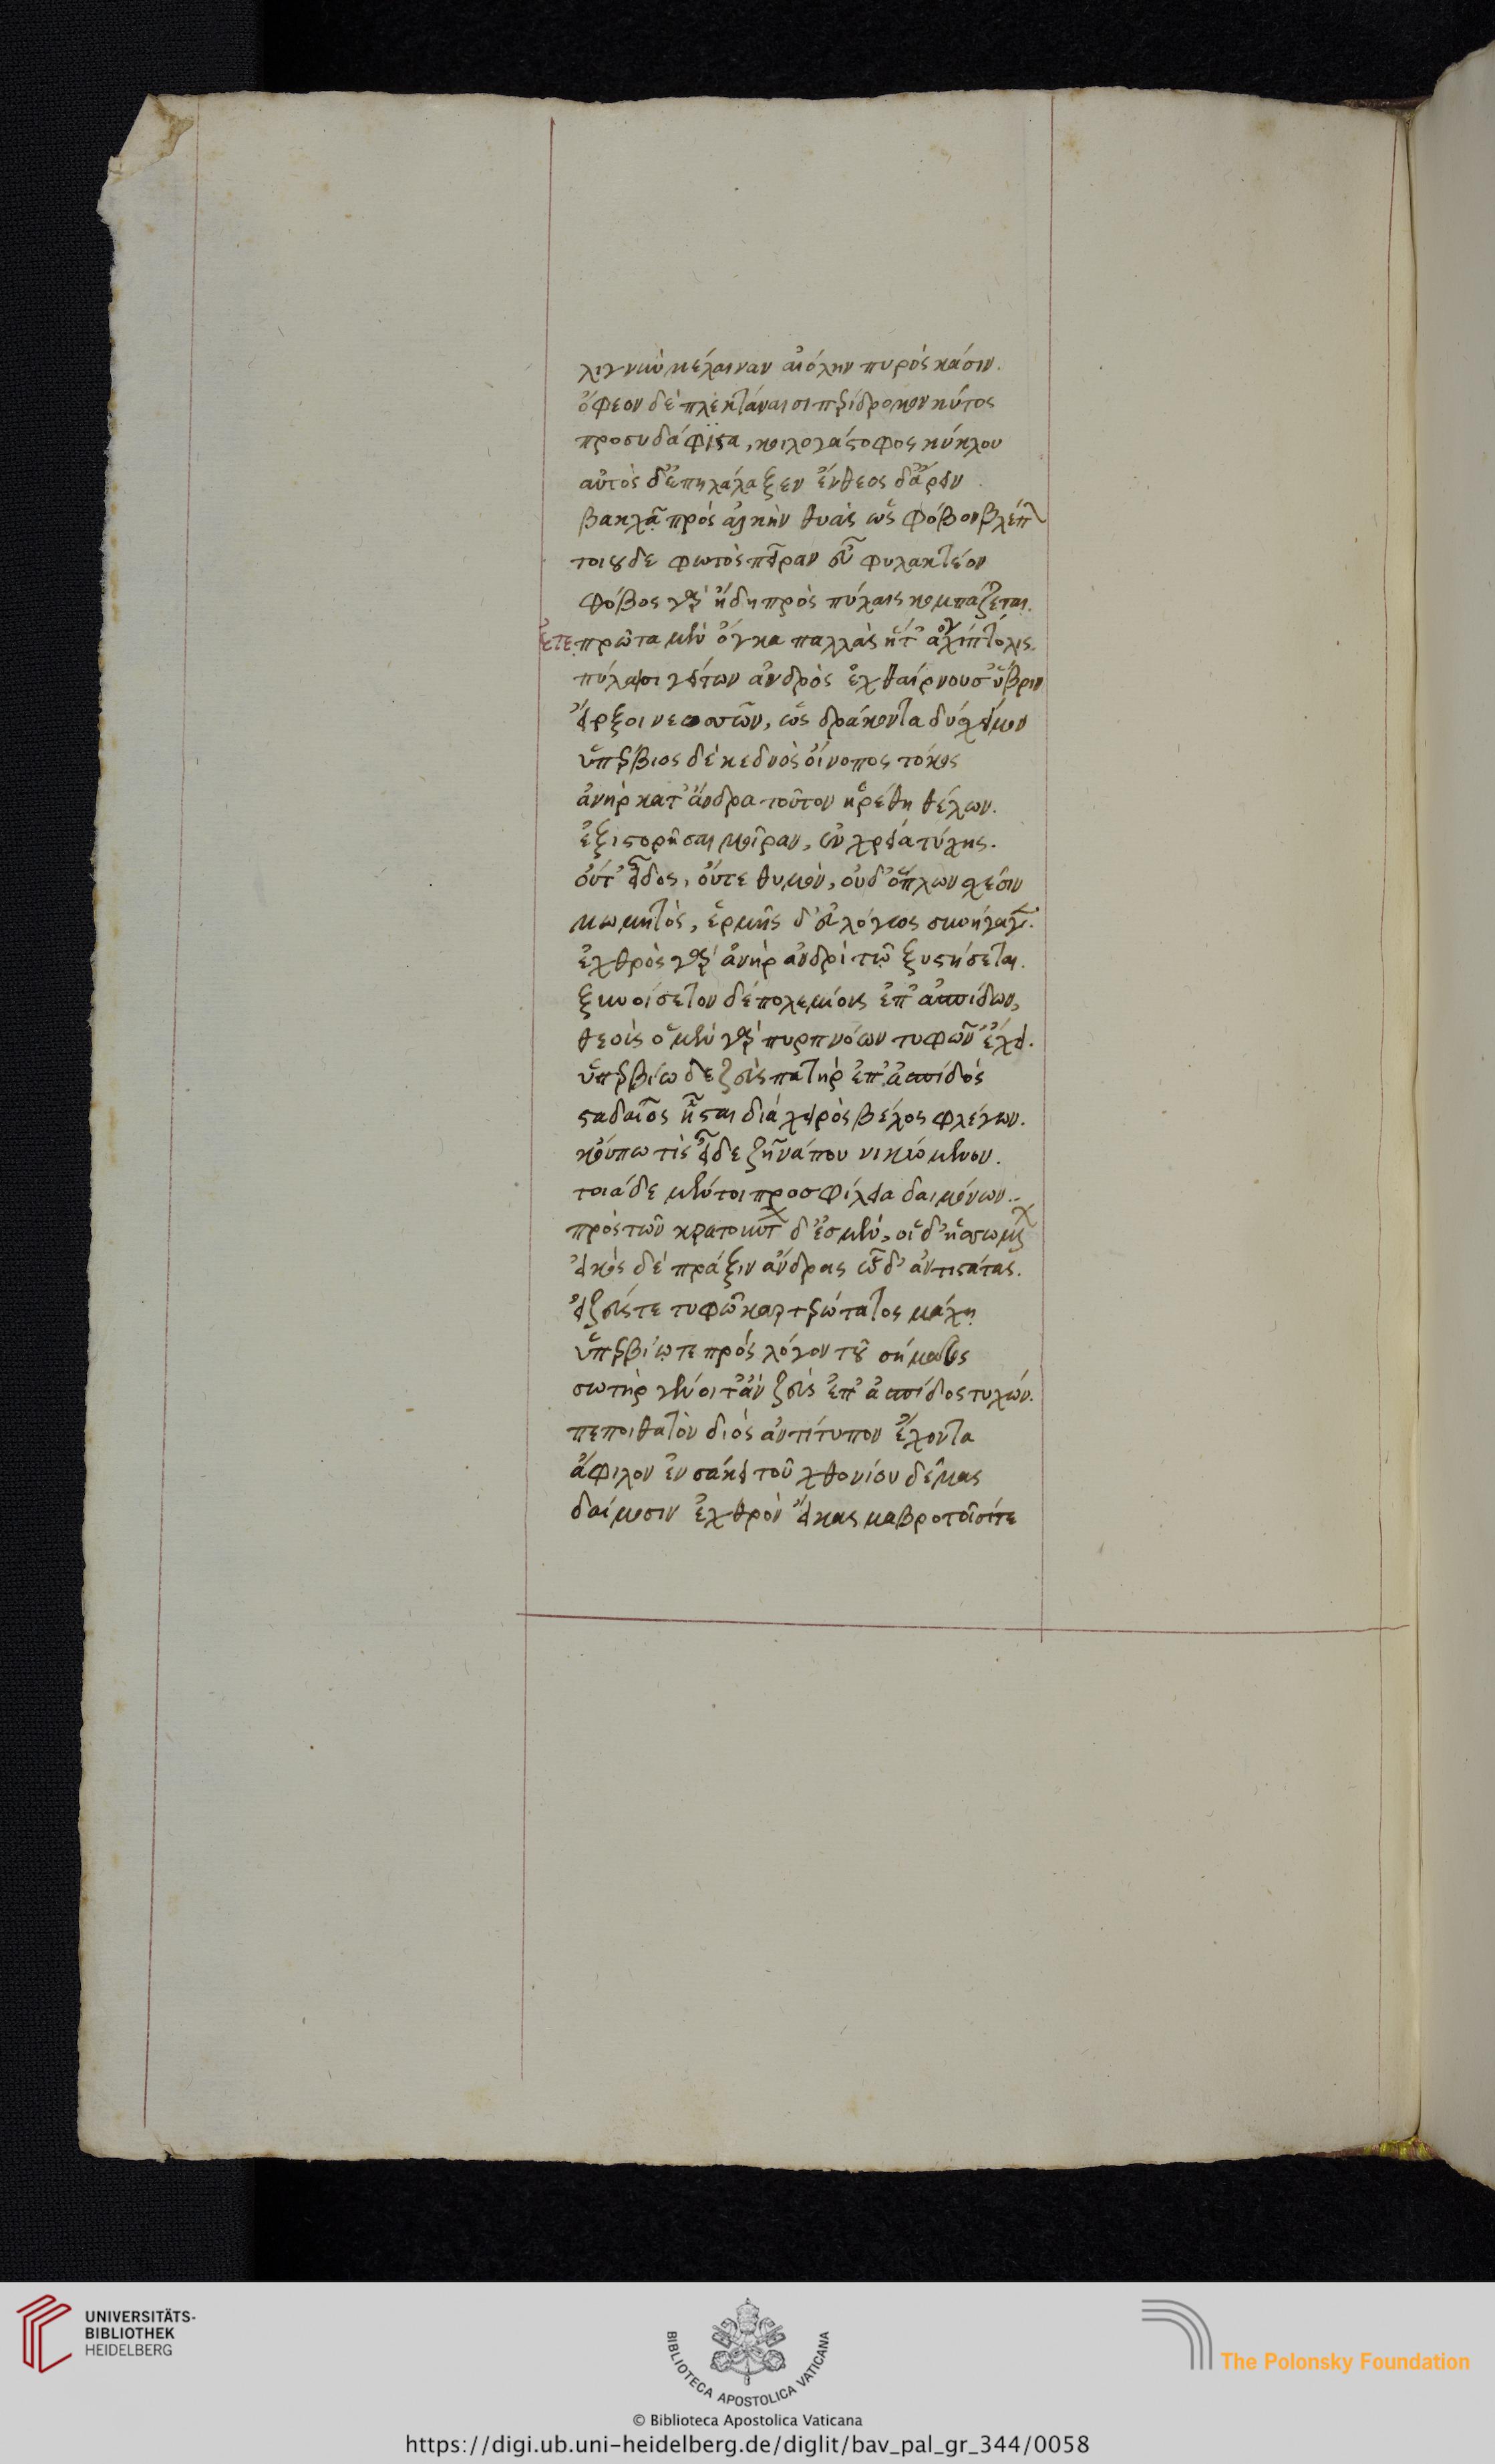 λιγνὺν μέλαιναν αἰόλην πυρὸς κάσιν.
ὄφεον δὲ πλεκτάναισι περίδρομον κύτος
προσυδάφϊσα, κοιλογάστοφος κύκλου
αὐτὸς δ' ἐπηλάλαξεν ἔνθεος δ' ἄρειν
βακχᾶ πρὸς ἀλκὴν θυὰς ὣς φόβον βλέπ
τοιοῦδε φωτὸς πεῖραν εὖ φυλακτέον
φόβος γὰρ ἤδη πρὸς πύλαις κομπάζεται.
ΕΤΕ. πρῶτα μὲν ὄγκα παλλὰς ἥτ' ἀγχίπτολις.
πύλαισι γείτων ἀνδρὸς ἐχθαίρουσ' ὕβριν
εἴρξοι νεοσσῶν, ὡς δράκοντα δύσχειμον
ὑπέρβιος δὲ κεδνὸς οἴνοπος τόκος
ἀνὴρ κατ' ἄνδρα τοῦτον ᾑρέθη θέλων.
ἐξιστορῆσαι μοῖραν, ἐν χρείᾳ τύχης.
οὔτ' εἶδος, οὔτε θυμὸν, οὐδ' ὅπλων σχέσιν
μωμητὸς, ἑρμῆς δ' εὐλόγως συνήγαγεν.
ἐχθρὸς γὰρ ἀνὴρ ἀνδρὶ τῷ ξυστήσεται.
ξυνοίσετον δὲ πολεμίους ἐπ' ἀσπίδων,
θεοὺς ὁ μὲν γὰρ πυρπνόων τυφῶν' ἔχει.
ὑπερβίω δε ζεὺς πατὴρ ἐπ' ἀσπίδος
σταδαῖος ἧσται διὰ χερὸς βέλος φλέγων.
κοὔπω τὶς εἶδε ζῆνά που νικώμενον.
τοιάδε μέντοι προσφίλεια δαιμόνων.
πρὸς τῶν κρατούντ δ' ἐσμὲν, οἱ δ' ἡσσωμέν
εἰκὸς δὲ πράξιν ἄνδρας ὧδ' ἀντιστάτας.
εἰ ζεύς τε τυφῶ καρτερώτατος μάχῃ
ὑπερβίῳ τε πρὸς λόγον τοῦ σήματος
σωτὴρ γένοιτ' ἂν ζεὺς ἐπ' ἀσπίδος τυχών.
πεποιθα τὸν διὸς ἀντίτυπον ἔχοντα
ἄφιλον ἐν σάκει τοῦ χθονίου δέμας
δαίμοσιν ἐχθρὸν εἴκασμα βροτοῖσί τε
UNIVERSITÄTS-
BIBLIOTHEK
HEIDELBERG
BIBLIOTECA APOSTOLICA VATICANA
© Biblioteca Apostolica Vaticana
The Polonsky Foundation
https://digi.ub.uni-heidelberg.de/diglit/bav_pal_gr_344/0058